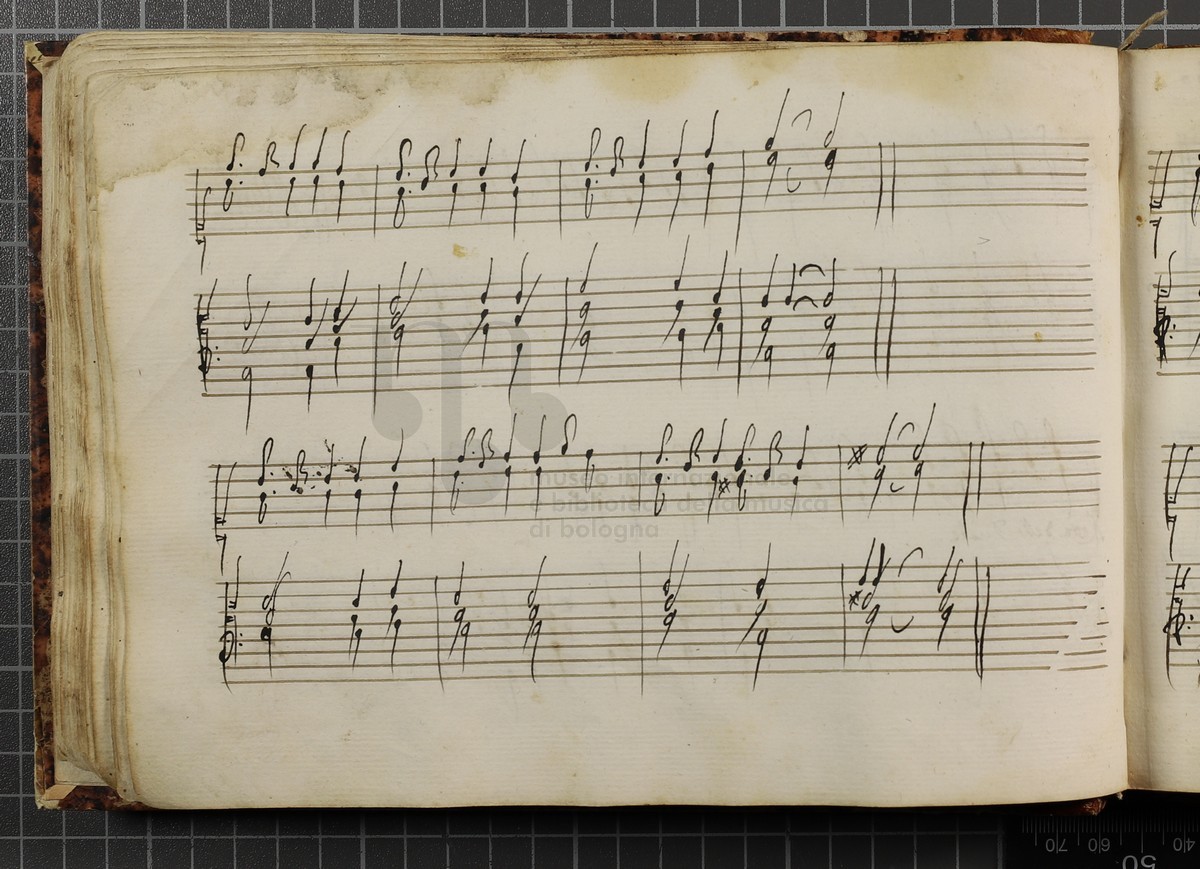 museo internazionale
e biblioteca della musica
di bologna
70
60
50
40